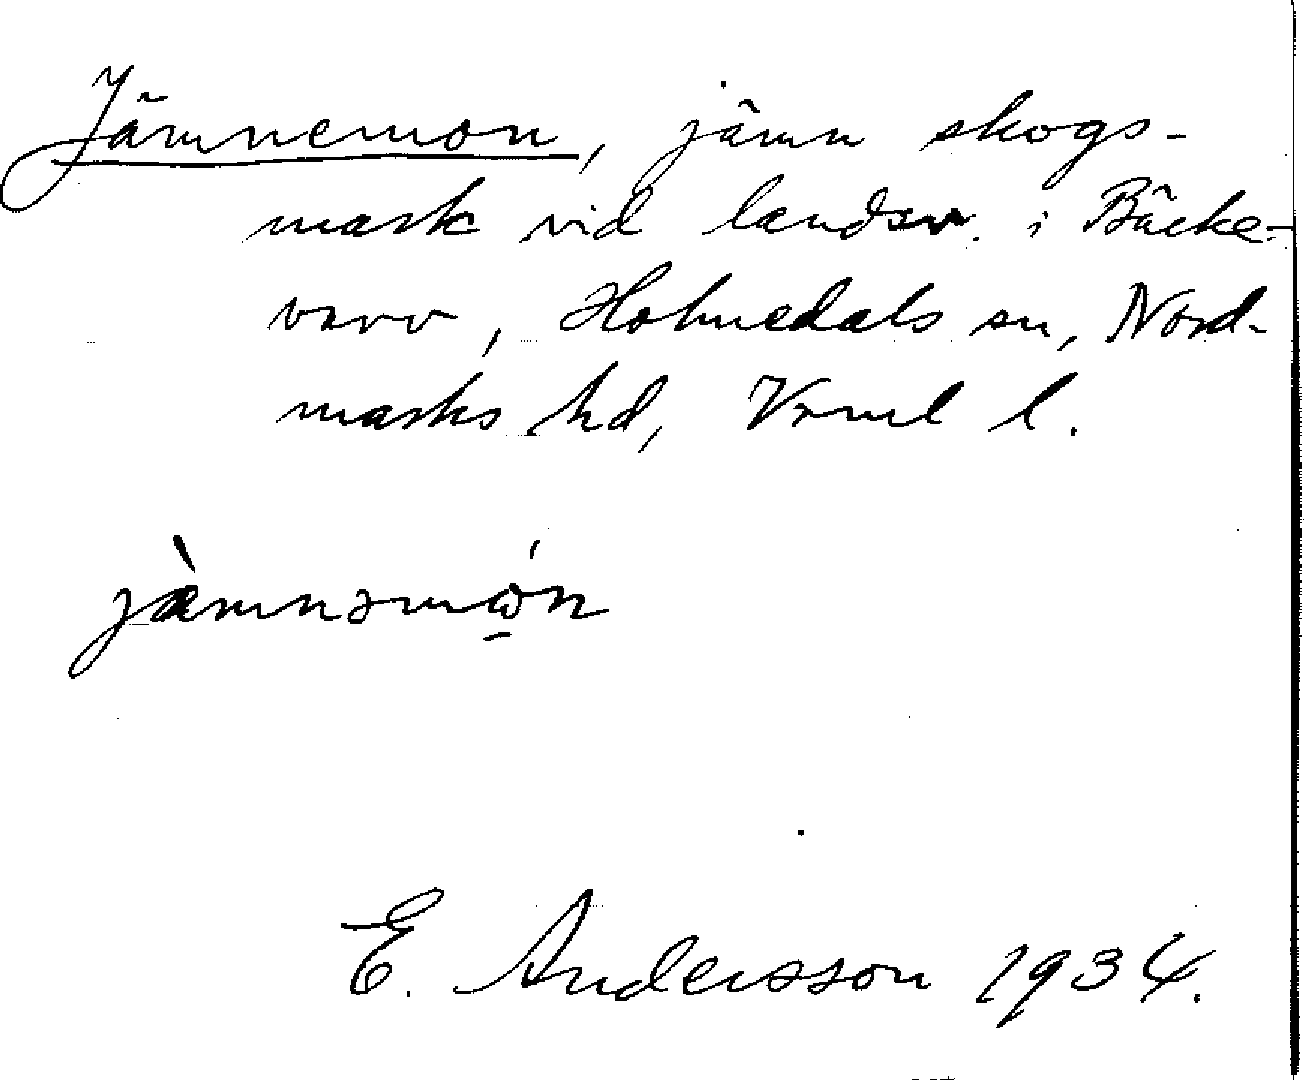 Jämnemon, jämn skogs-
mark vid landsv. i Bäcke-
varv, Holmedals sn, Nord-
marks hd, Vrml l.
jæ̀mnəmώ̲n
E. Andersson 1934.